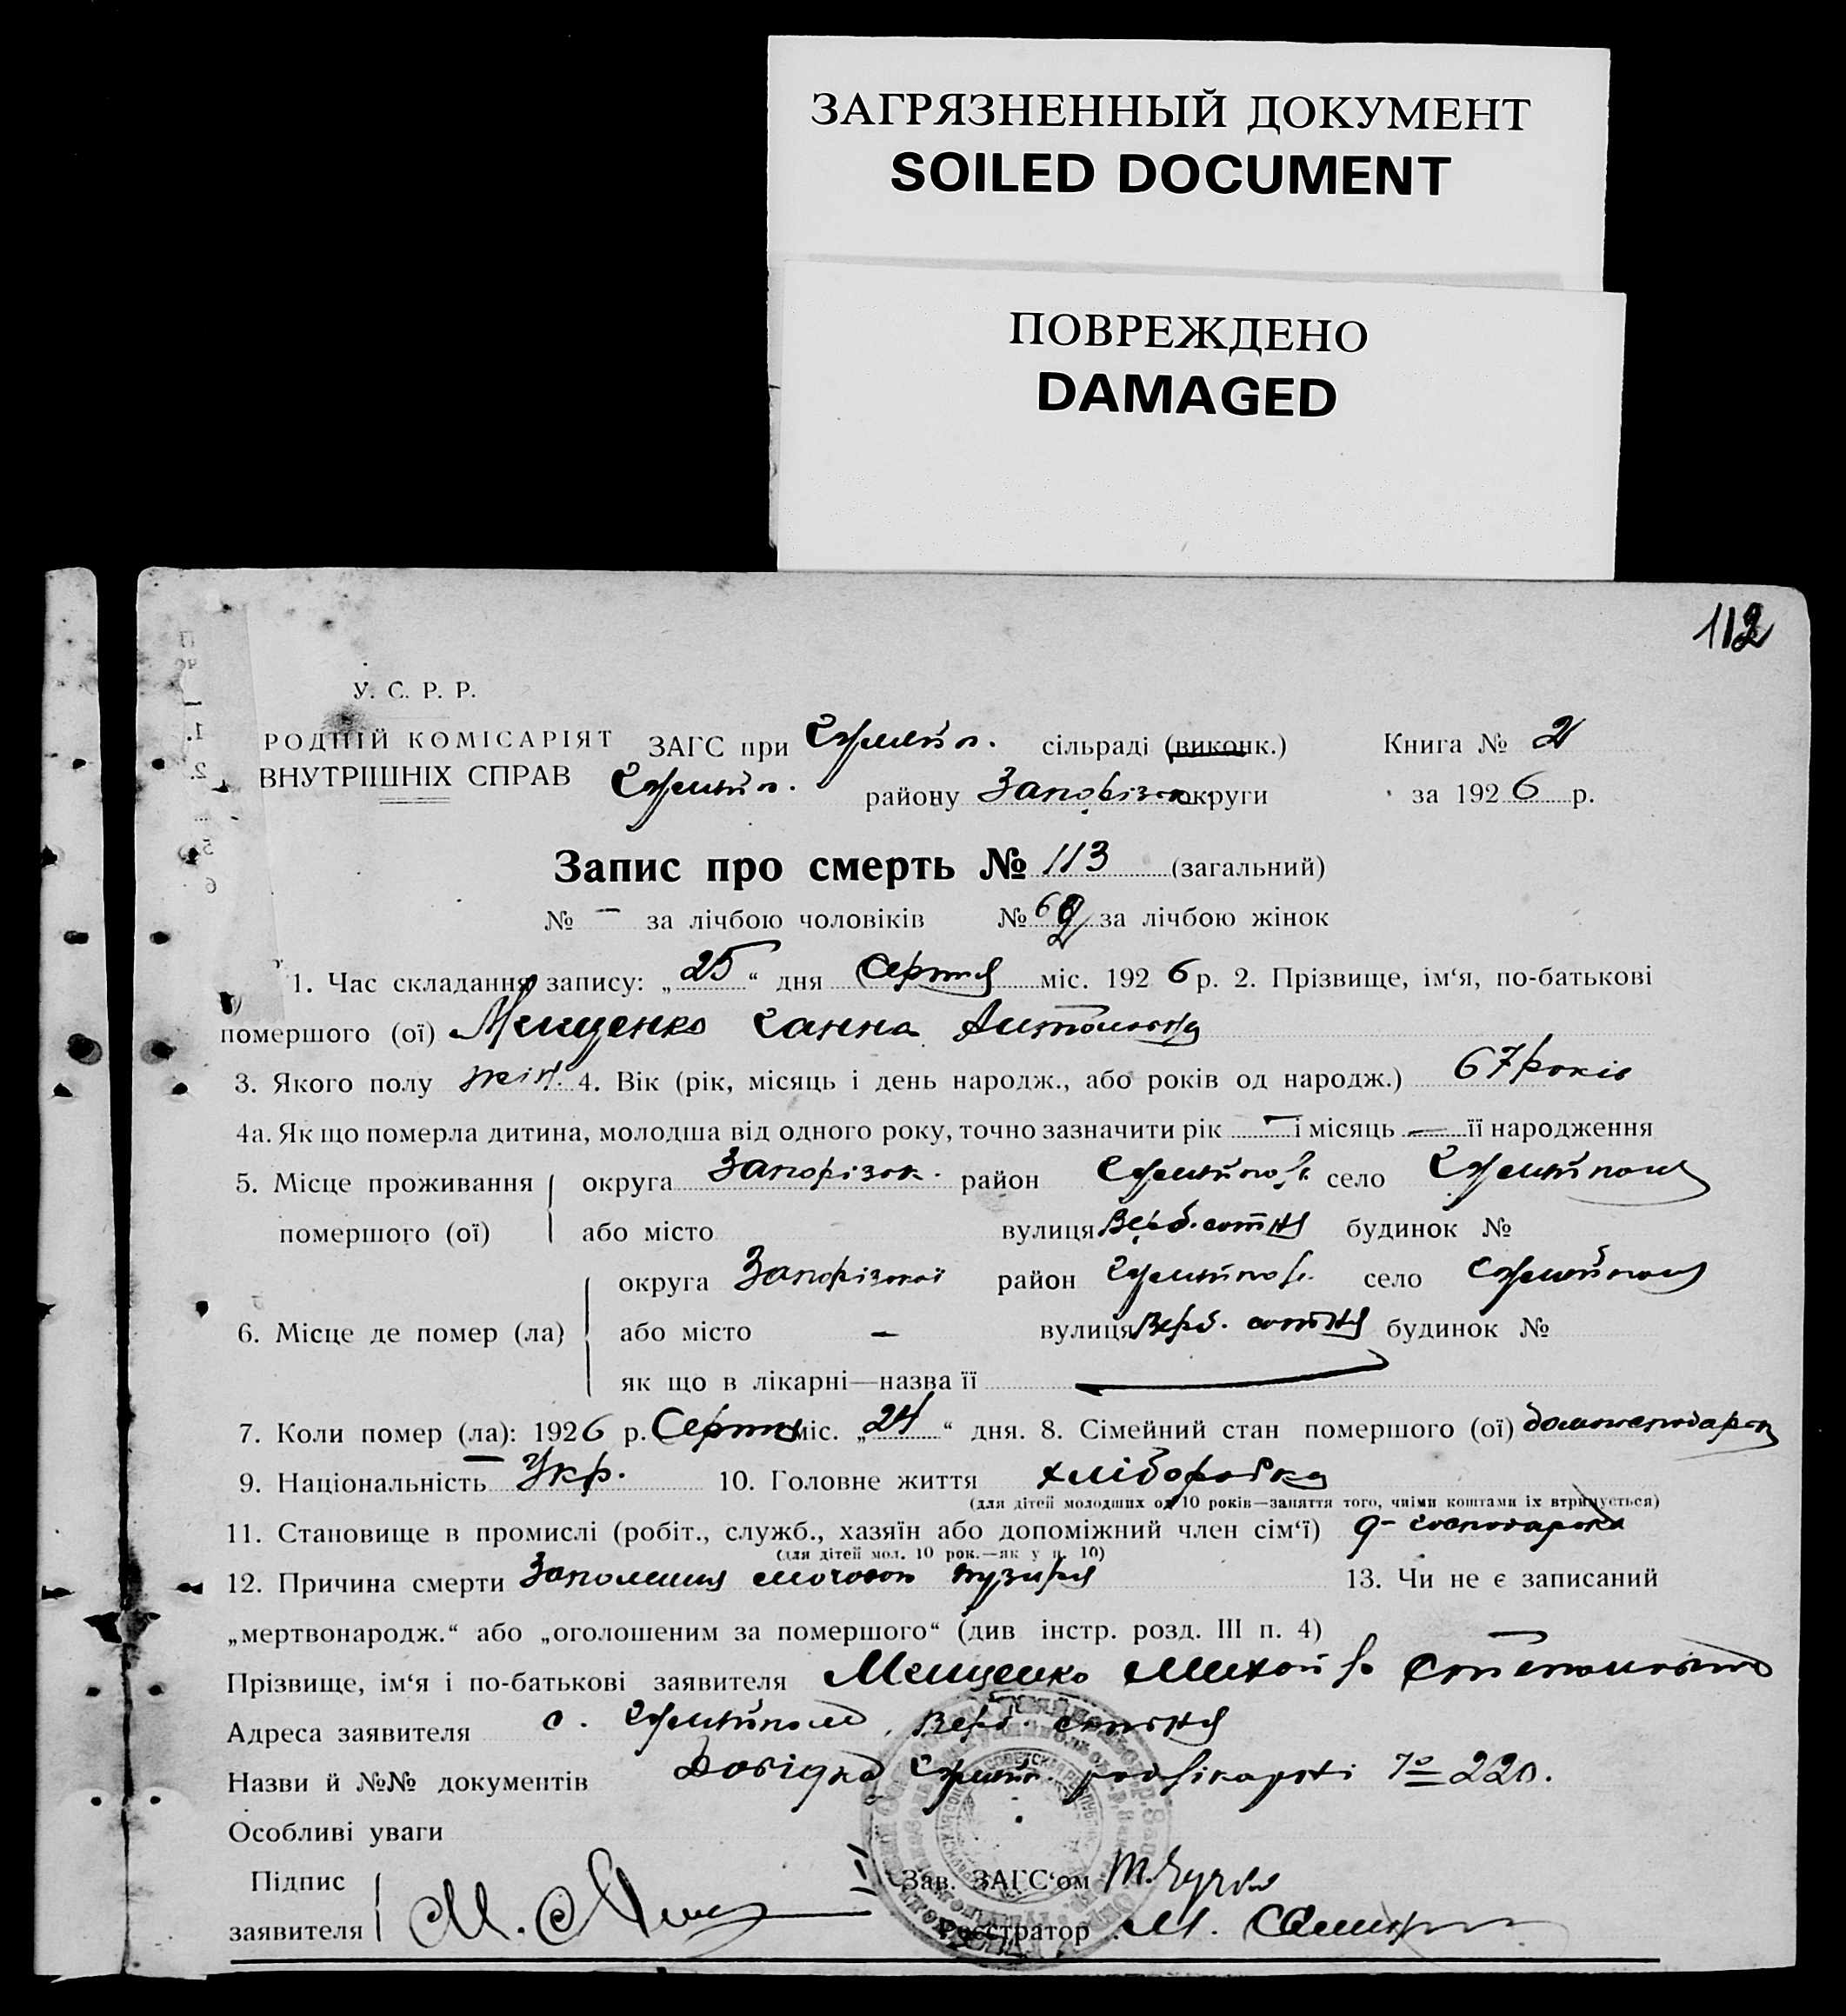 ЗАГРЯЗНЕННЫЙ ДОКУМЕНТ
SOILED DOCUMENT
ПОВРЕЖДЕНО
DAMAGED
112
У. С. Р. Р.
РОДНІЙ КОМІСАРІЯТ ЗАГС при сільраді (виконк.) Книга № 2
ВНУТРІШНІХ СПРАВ району Запорізьк. округи за 1926 р.
Запис про смерть № 113 (загальний)
№ — за лічбою чоловіків № 69 за лічбою жінок
1. Час складання запису: „25“ дня Серпня міс. 1926 р. 2. Прізвище, ім‘я, по-батькові
помершого (ої) Мищенко Ганна Антоновна
3. Якого полу жін. 4. Вік (рік, місяць і день народж., або років од народж.) 67 років
4а. Як що померла дитина, молодша від одного року, точно зазначити рік — і місяць — її народження
5. Місце проживання округа Запорізьк. район село
помершого (ої) або місто вулиця Верб. сотня будинок №
округа Запорізької район село
6. Місце де помер (ла) або місто — вулиця Верб. сотня будинок №
як що в лікарні—назва її
7. Коли помер (ла): 1926 р. Серпня міс. „24“ дня. 8. Сімейний стан помершого (ої)
9. Національність Укр. 10. Головне життя хліборобка
(для дітей молодших од 10 років—заняття того, чиїми коштами їх втримується)
11. Становище в промислі (робіт., служб., хазяїн або допоміжний член сім‘ї)
(для дітей мол. 10 рок.—як у п. 10)
12. Причина смерти пузиря 13. Чи не є записаний
„мертвонародж.“ або „оголошеним за помершого“ (див інстр. розд. III п. 4)
Прізвище, ім‘я і по-батькові заявителя Мищенко
Адреса заявителя с. Верб. сотня
Назви й №№ документів Довідка № 220.
Особливі уваги
Підпис Зав. ЗАГС‘ом
заявителя Реєстратор